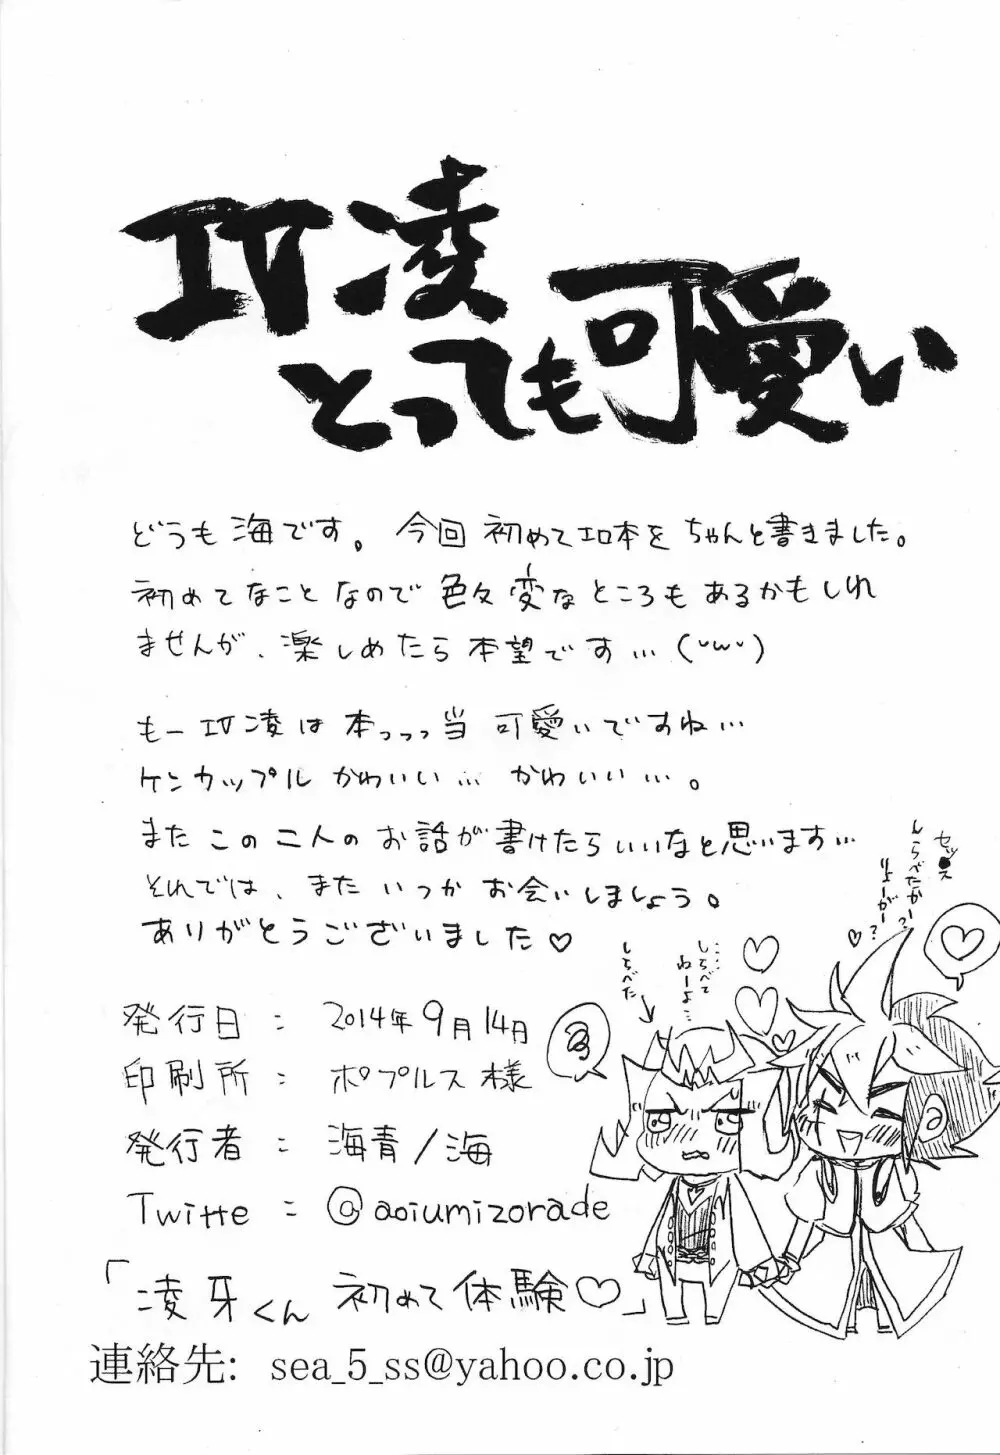 IV凌
とっても可愛い
どうも海です。今回初めてエロ本をちゃんと書きました。
初めてなことなので色々変なところもあるかもしれ
ませんが、楽しめたら本望です…(˘ω˘)
もーIV凌は本っっっ当可愛いですね…
ケンカップルかわいい…かわいい…。
またこの二人のお話が書けたらいいなと思います…
それでは、またいつかお会いしましょう。
ありがとうございました♡
セッ●ス
しらべたかー?
りょーがー?
♡
しらべて
ねーよ…
しらべた
発行日：2014年9月14日
印刷所：ポプルス様
発行者：海青/海
Twitte：@aoiumizorade
「凌牙くん初めて体験♡」
連絡先: sea_5_ss@yahoo.co.jp